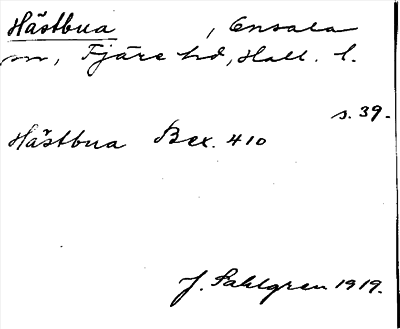 Hästbua , Onsala
sn, Fjäre hd, Hall. l.
s. 39.
Hästbua Bex. 410
J. Sahlgren 1919.